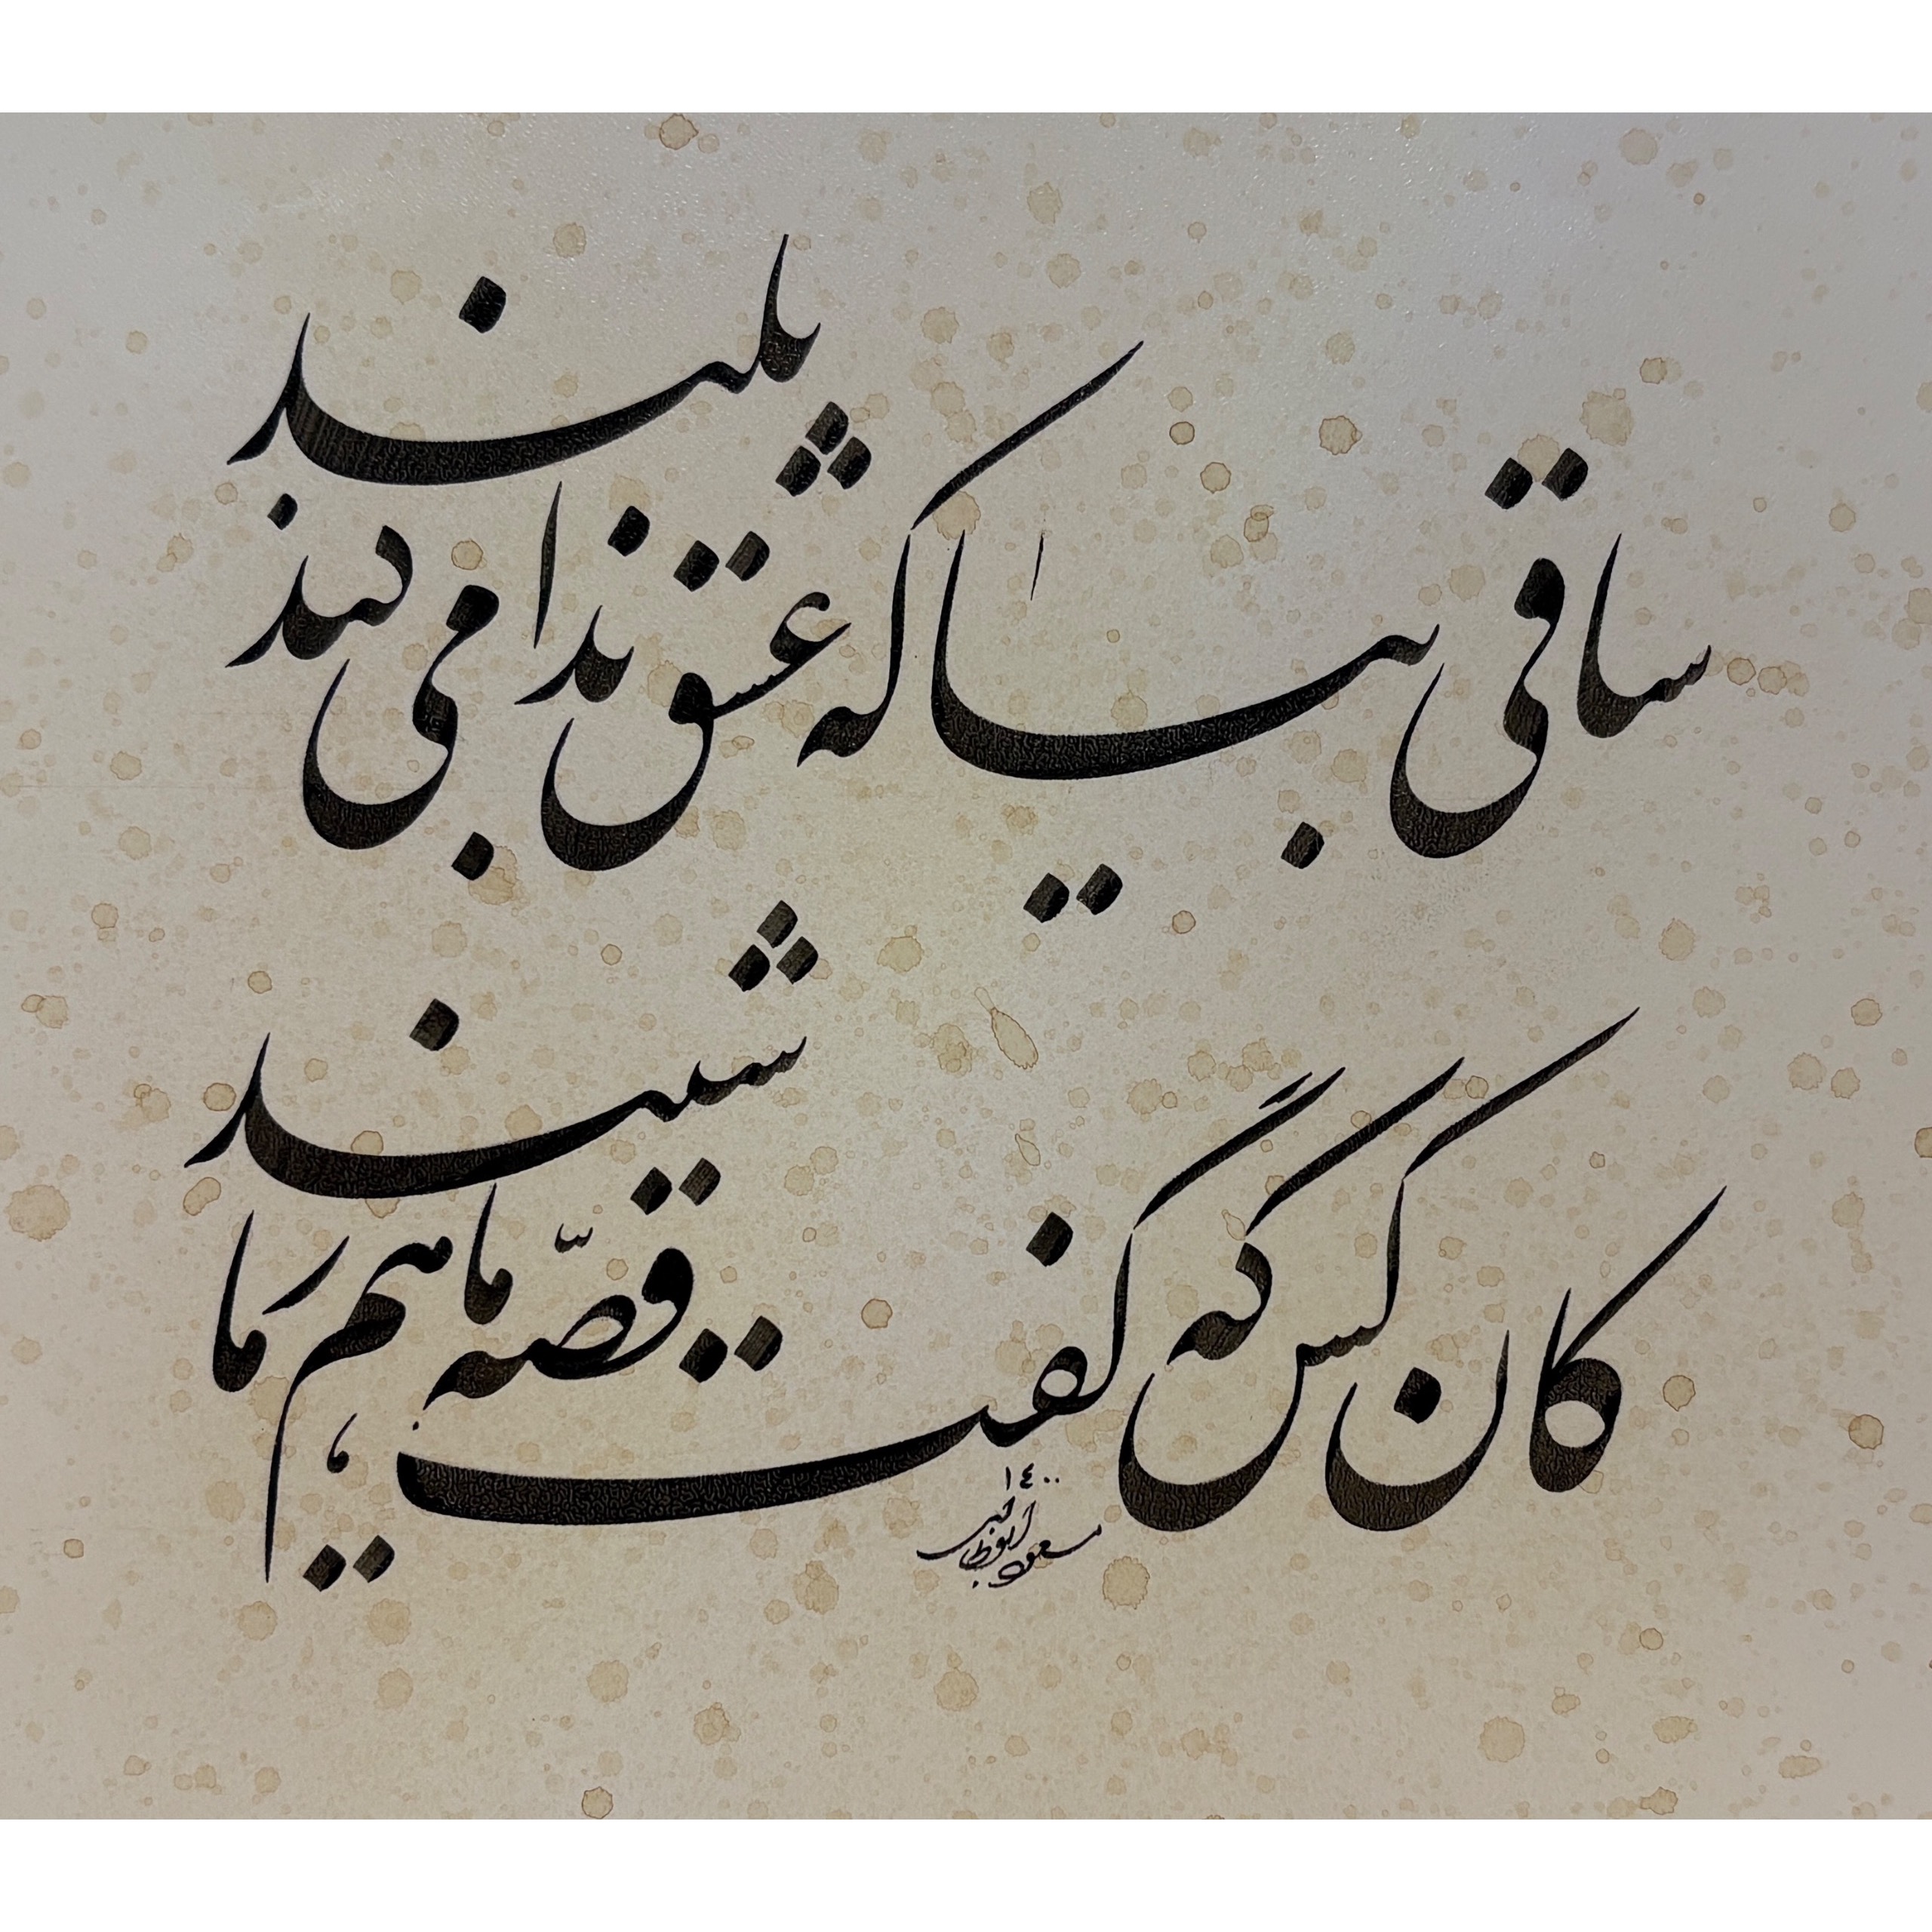 ساقی بیا که عشق ندا می‌کند بلند
کان کس که گفت قصّه ما هم ز ما شنید
۱۴۰۰
مسعود ابوطالبی